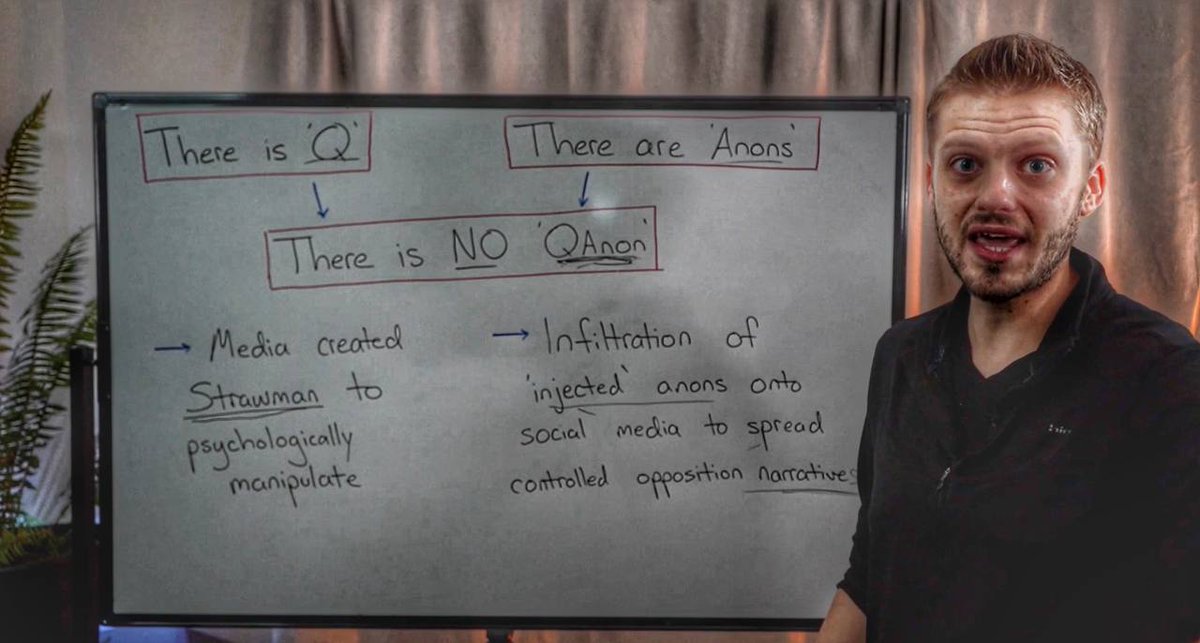 There is 'Q'
There are 'Anons'
There is NO 'QAnon'
→ Media created
Strawman to
psychologically
manipulate
→ Infiltration of
'injected' anons onto
social media to spread
controlled opposition narratives